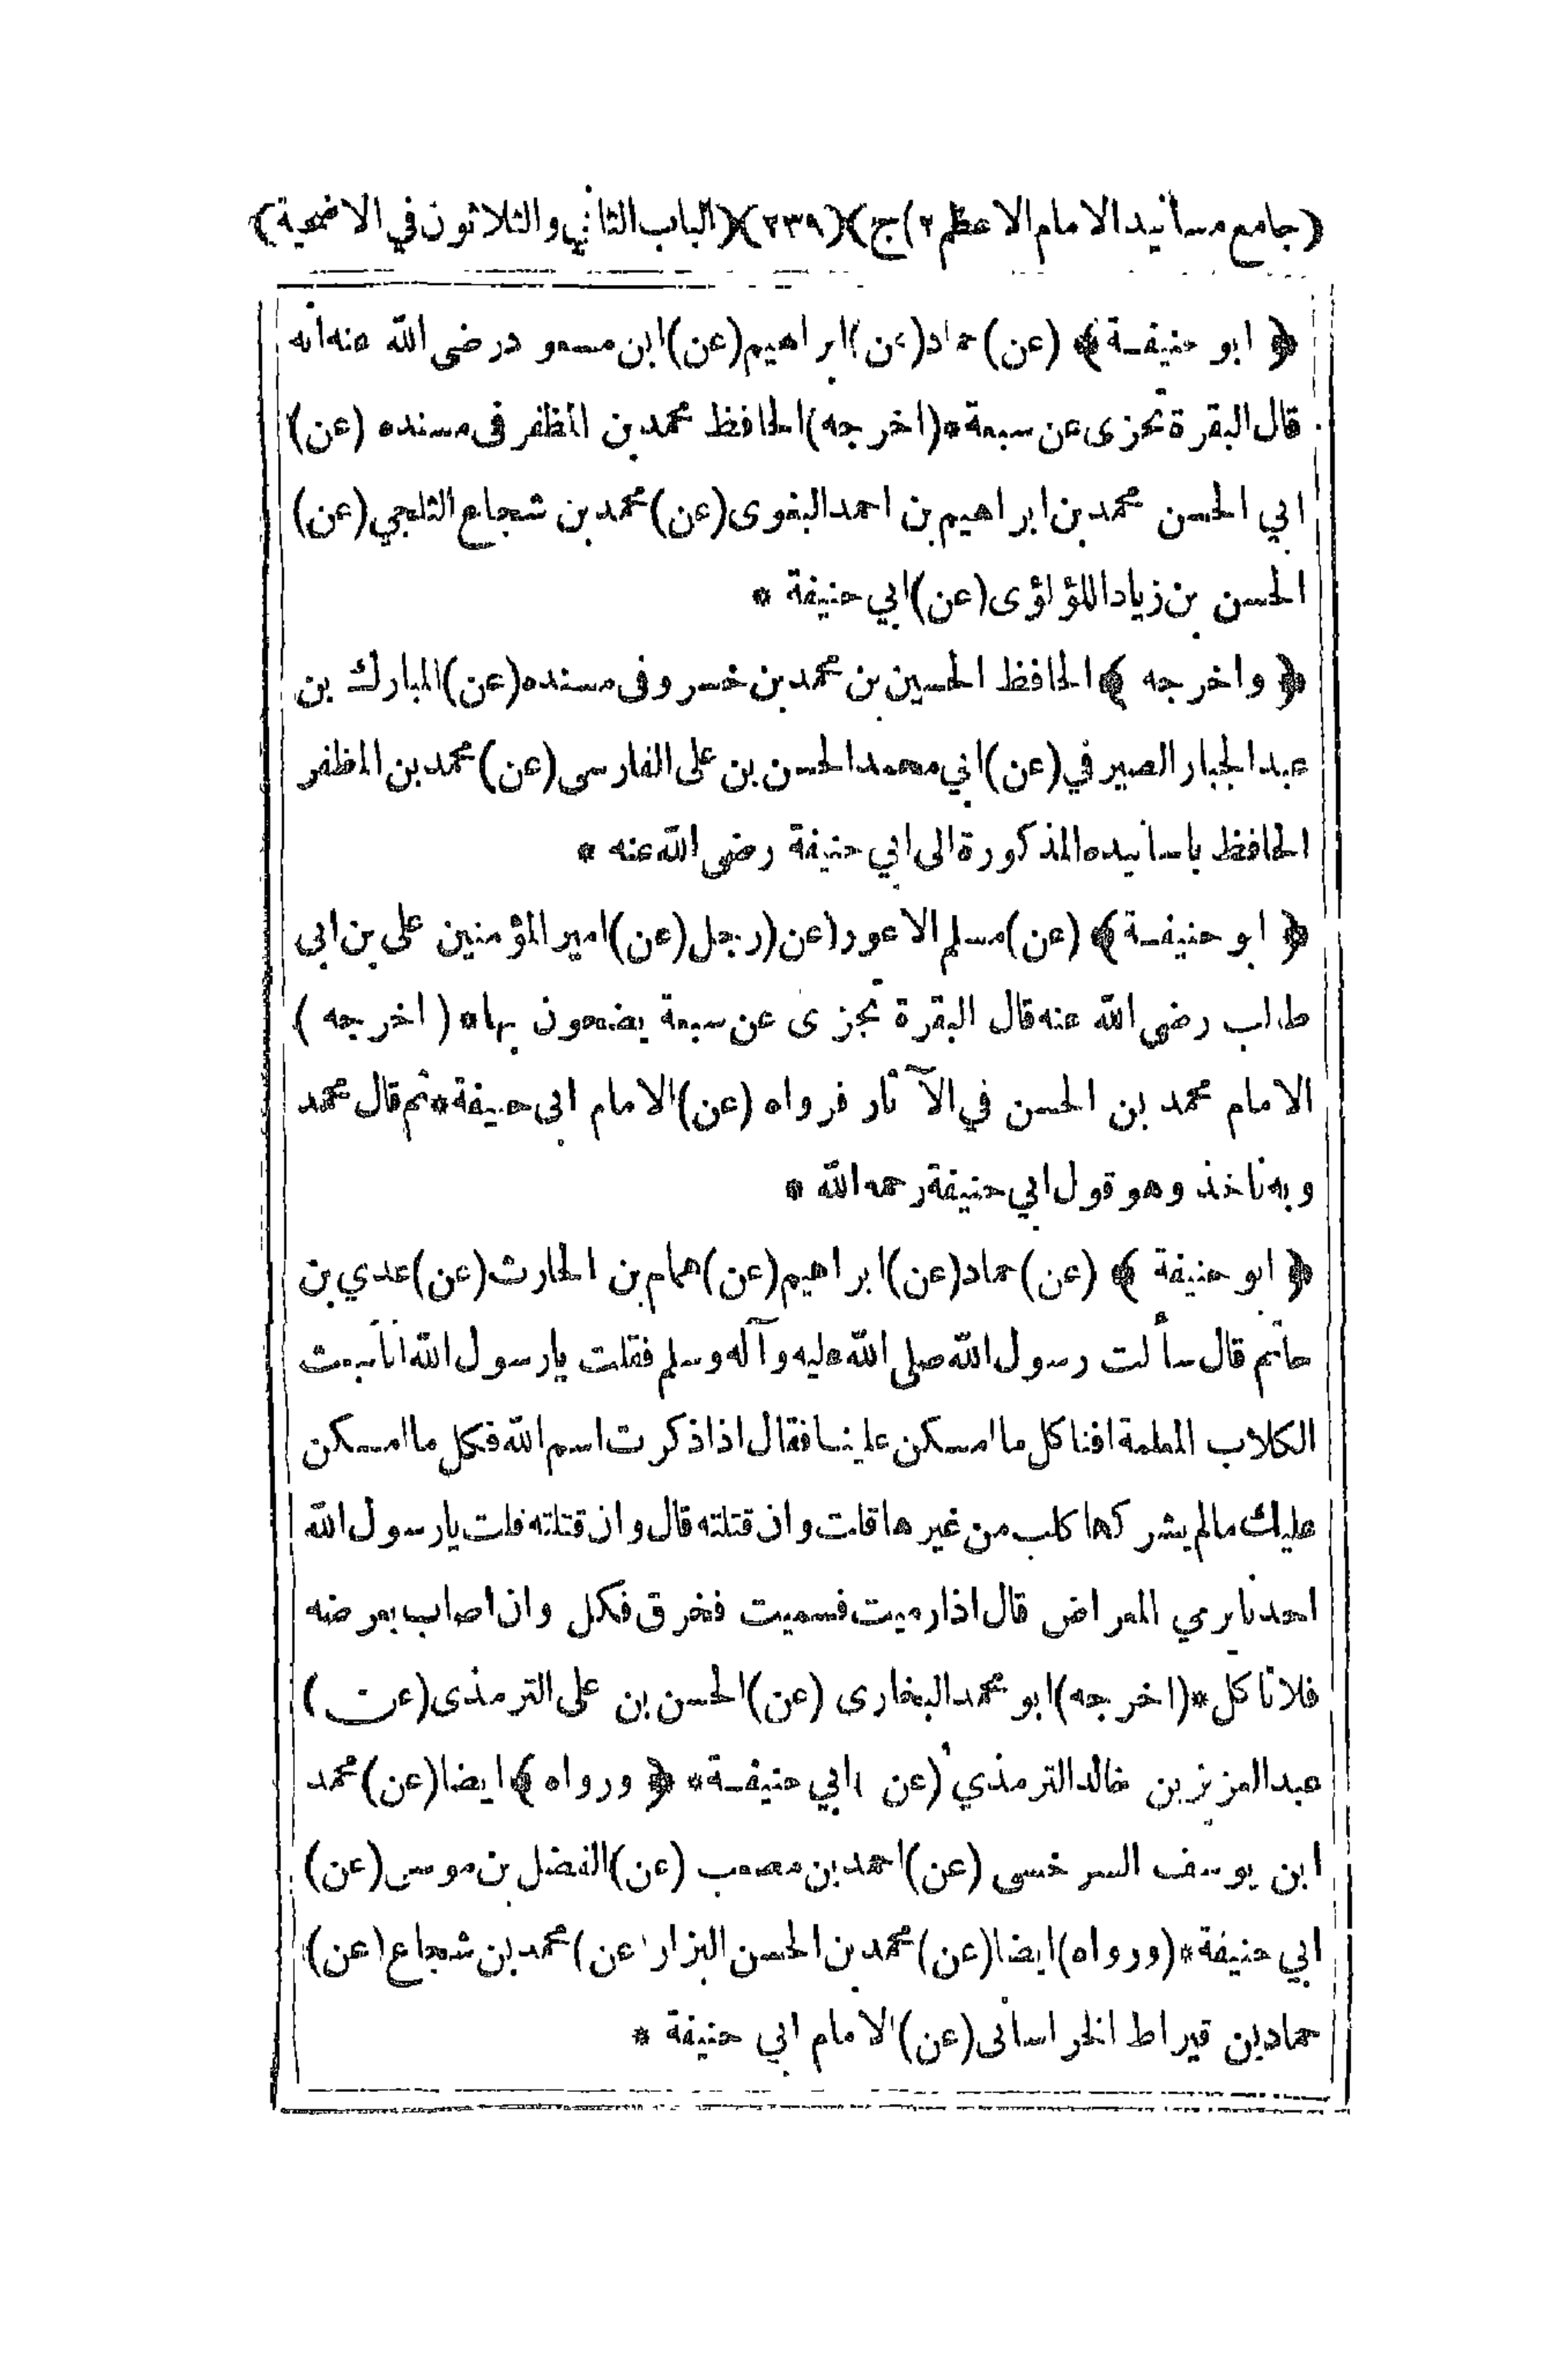 (جامع مسانيد الامام الاعظم ٢ ج) (٢٣٩) (الباب الثاني والثلاثون في الاضحية)
﴿ ابو حنيفة ﴾ (عن) حماد (عن) ابراهيم (عن) ابن مسعود رضى الله عنه انه
قال البقرة تجزى عن سبعة * (اخرجه) الحافظ محمد بن المظفر فى مسنده (عن)
ابي الحسن محمد بن ابراهيم بن احمد البغوى (عن) محمد بن شجاع الثلجي (عن)
الحسن بن زياد اللؤلؤى (عن) ابي حنيفة *
﴿ واخرجه ﴾ الحافظ الحسين بن محمد بن خسرو فى مسنده (عن) المبارك بن
عبد الجبار الصيرفي (عن) ابي محمد الحسن بن على الفارسى (عن) محمد بن المظفر
الحافظ باسانيده المذكورة الى ابي حنيفة رضى الله عنه *
﴿ ابو حنيفة ﴾ (عن) مسلم الاعور (عن) رجل (عن) امير المؤمنين على بن ابى
طالب رضى الله عنه قال البقرة تجزى عن سبعة يضحون بها * ( اخرجه )
الامام محمد بن الحسن في الآثار فرواه (عن) الامام ابى حنيفة * ثم قال محمد
وبه ناخذ وهو قول ابي حنيفة رحمه الله *
﴿ ابو حنيفة ﴾ (عن) حماد (عن) ابراهيم (عن) همام بن الحارث (عن) عدي بن
حاتم قال سألت رسول الله صلى الله عليه وآله وسلم فقلت يا رسول الله انا نبعث
الكلاب المعلمة افناكل ما امسكن علينا فقال اذا ذكرت اسم الله فكل ما امسكن
عليك مالم يشركها كلب من غيرها قلت وان قتلته قال وان قتلته قلت يا رسول الله
احدنا يرمي المعراض قال اذا رميت فسميت فخرق فكل وان اصاب بعرضه
فلا تأكل * (اخرجه) ابو محمد البخارى (عن) الحسن بن على الترمذى (عن)
عبد العزيز بن خالد الترمذي (عن) ابي حنيفة * ﴿ ورواه ﴾ ايضا (عن) محمد
ابن يوسف السرخسى (عن) احمد بن مصعب (عن) الفضل بن موسى (عن)
ابي حنيفة * (ورواه) ايضا (عن) محمد بن الحسن البزار (عن) محمد بن شجاع (عن)
حماد بن قيراط الخراسانى (عن) الامام ابي حنيفة *